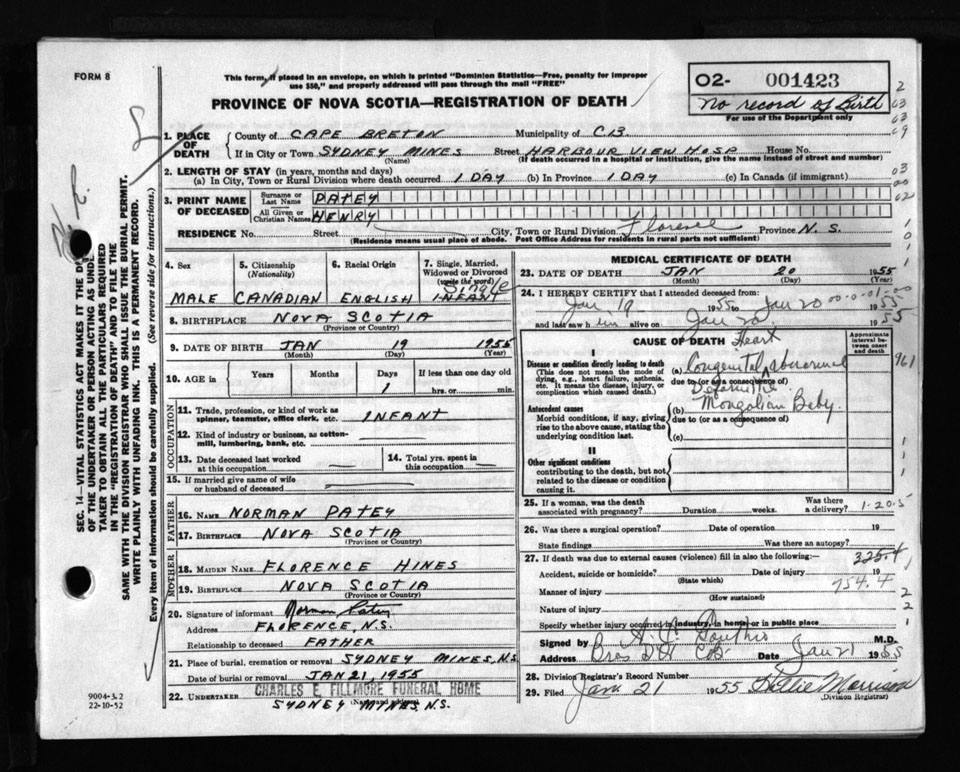 FORM 8
This form, if placed in an envelope, on which is printed "Dominion Statistics—Free, penalty for improper
use $50," and properly addressed will pass through the mail "FREE"
PROVINCE OF NOVA SCOTIA—REGISTRATION OF DEATH
02- 001423
No record of Birth
For use of the Department only
1. PLACE OF DEATH
County of CAPE BRETON Municipality of C.B.
If in City or Town SYDNEY MINES Street HARBOUR VIEW HOSP House No.
(Name) (If death occurred in a hospital or institution, give the name instead of street and number)
2. LENGTH OF STAY (in years, months and days)
(a) In City, Town or Rural Division where death occurred 1 DAY (b) In Province 1 DAY (c) In Canada (if immigrant)
3. PRINT NAME OF DECEASED
Surname or Last Name PATEY
All Given or Christian Names HENRY
RESIDENCE No. Street City, Town or Rural Division Florence Province N. S.
(Residence means usual place of abode. Post Office Address for residents in rural parts not sufficient)
4. Sex MALE
5. Citizenship (Nationality) CANADIAN
6. Racial Origin ENGLISH
7. Single, Married, Widowed or Divorced (write the word) Single INFANT
8. BIRTHPLACE NOVA SCOTIA
(Province or Country)
9. DATE OF BIRTH JAN 19 1955
(Month) (Day) (Year)
10. AGE in Years Months Days 1 If less than one day old hrs. or min.
OCCUPATION
11. Trade, profession, or kind of work as spinner, teamster, office clerk, etc. INFANT
12. Kind of industry or business, as cotton-mill, lumbering, bank, etc.
13. Date deceased last worked at this occupation
14. Total yrs. spent in this occupation
15. If married give name of wife or husband of deceased
FATHER
16. NAME NORMAN PATEY
17. BIRTHPLACE NOVA SCOTIA
(Province or Country)
MOTHER
18. MAIDEN NAME FLORENCE HINES
19. BIRTHPLACE NOVA SCOTIA
(Province or Country)
20. Signature of informant Norman Patey
Address FLORENCE, N.S.
Relationship to deceased FATHER
21. Place of burial, cremation or removal SYDNEY MINES, N.S.
Date of burial or removal JAN 21, 1955
22. UNDERTAKER CHARLES E. FILLMORE FUNERAL HOME
(Name and address)
SYDNEY MINES, N.S.
MEDICAL CERTIFICATE OF DEATH
23. DATE OF DEATH JAN 20 1955
(Month) (Day) (Year)
24. I HEREBY CERTIFY that I attended deceased from:
Jan 19 1955 to Jan 20 1955
and last saw him alive on Jan 20 1955
CAUSE OF DEATH
Approximate interval between onset and death
I
Disease or condition directly leading to death
(This does not mean the mode of dying, e.g., heart failure, asthenia, etc. It means the disease, injury, or complication which caused death.)
(a) Congenital Heart abnormal
due to (or as a consequence of)
Deformities
Antecedent causes
Morbid conditions, if any, giving rise to the above cause, stating the underlying condition last.
(b) Mongolian Baby
due to (or as a consequence of)
(c)
II
Other significant conditions
contributing to the death, but not related to the disease or condition causing it.
25. If a woman, was the death associated with pregnancy? Duration weeks. Was there a delivery?
1-20-5
26. Was there a surgical operation? Date of operation 19
State findings Was there an autopsy?
27. If death was due to external causes (violence) fill in also the following:—
325.4
Accident, suicide or homicide? Date of injury 19
(State which)
754.4
Manner of injury
(How sustained)
Nature of injury
Specify whether injury occurred in industry, in home, or in public place
Signed by M.D.
Address Bras D'Or CB Date Jan 21 1955
28. Division Registrar's Record Number
29. Filed Jan 21 1955 Morrison
(Division Registrar)
9004-3.2
22-10-52
SEC. 14—VITAL STATISTICS ACT MAKES IT THE DU
OF THE UNDERTAKER OR PERSON ACTING AS UNDE
TAKER TO OBTAIN ALL THE PARTICULARS REQUIRED
IN THE "REGISTRATION OF DEATH" AND TO FILE THE
SAME WITH THE DIVISION REGISTRAR WHO SHALL ISSUE THE BURIAL PERMIT.
WRITE PLAINLY WITH UNFADING INK. THIS IS A PERMANENT RECORD.
Every item of information should be carefully supplied. (See reverse side for instructions.)